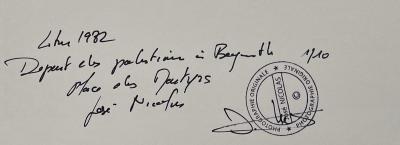 Liban 1982
Depart des palestiniens à Beyrouth 1/10
place des Martyrs
José Nicolas
PHOTOGRAPHIE ORIGINALE
JOSÉ NICOLAS
PHOTOGRAPHIE ORIGINALE